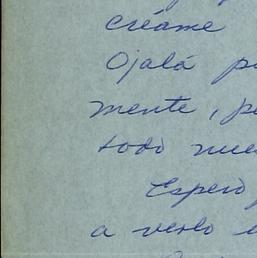 créame
Ojalá
mente, pe
todo nue
Espero
a verlo